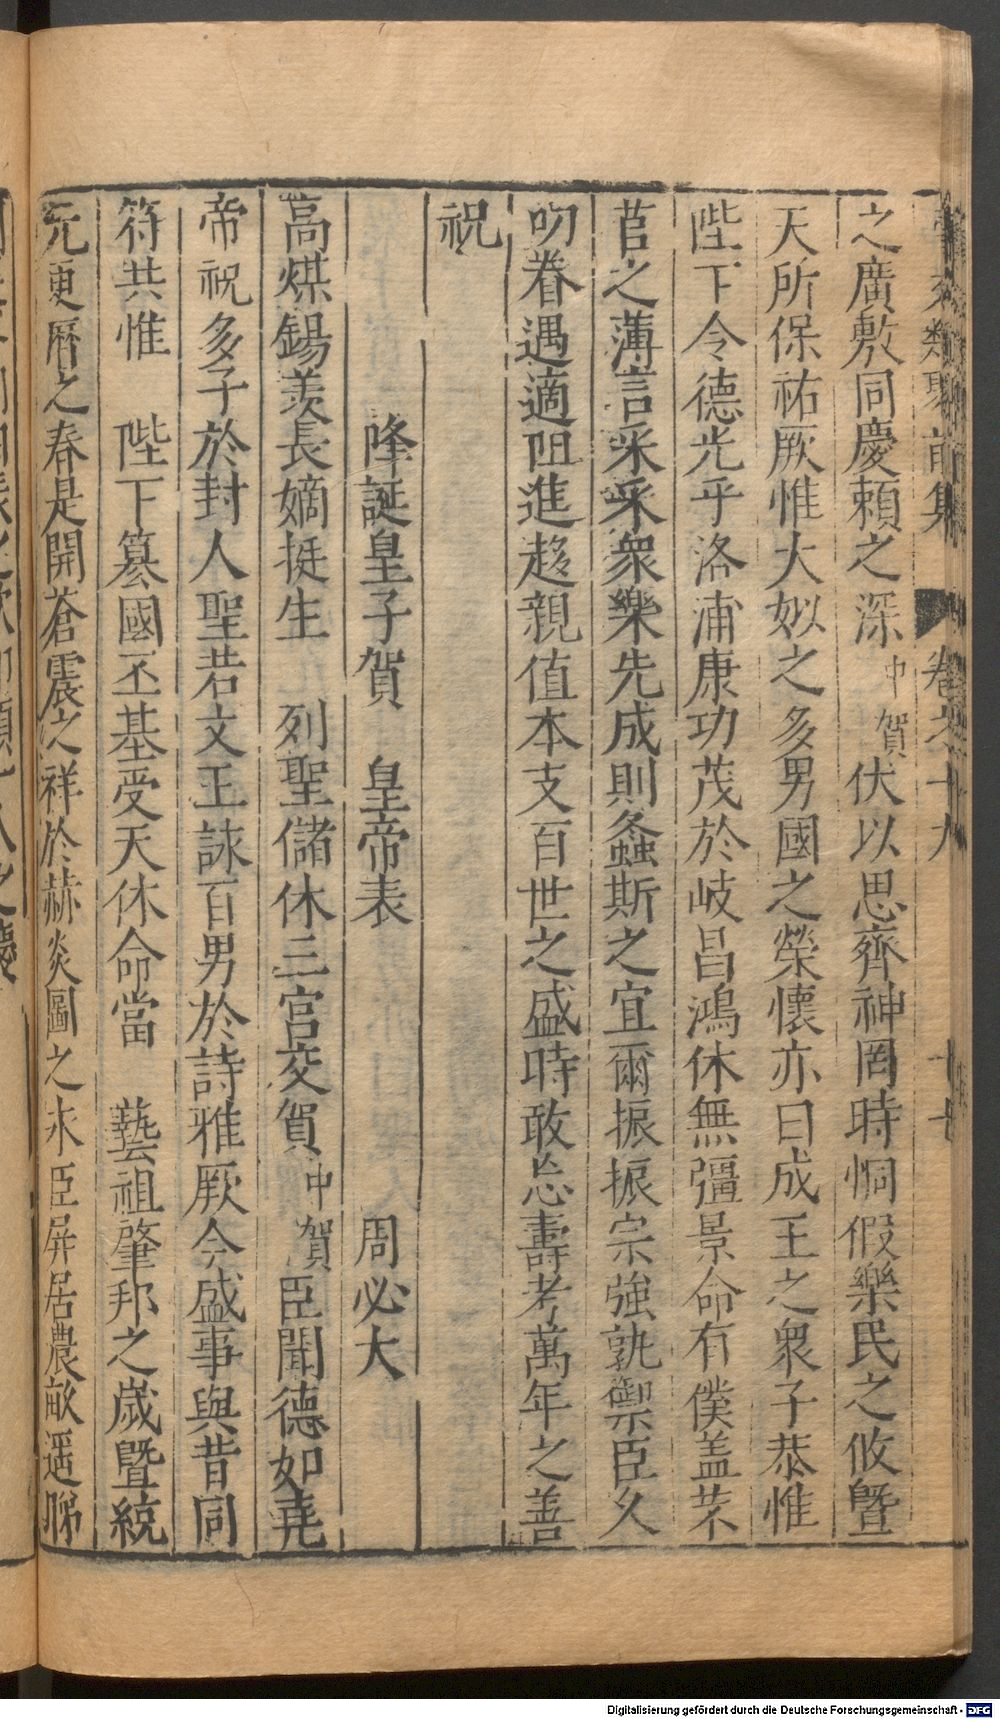 類聚前集 卷之十九 十七
之廣敷同慶賴之深中賀伏以思齊神罔時恫假樂民之攸曁
天所保祐厥惟大姒之多男國之榮懷亦曰成王之衆子恭惟
陛下令德光乎洛浦康功茂於岐昌鴻休無彊景命有僕盖芣
苢之薄言采采衆樂先成則螽斯之宜爾振振宗強孰禦臣久
叨眷遇適阻進趍親值本支百世之盛時敢忘壽考萬年之善
祝
降誕皇子賀 皇帝表 周必大
高煤錫羨長嫡挺生 列聖儲休三宮交賀中賀臣聞德如堯
帝祝多子於封人聖若文王詠百男於詩雅厥今盛事與昔同
符共惟 陛下纂國丕基受天休命當 藝祖肇邦之歲曁統
元更曆之春是開蒼震之祥於赫炎圖之永臣屏居農畝遥睇
Digitalisierung gefördert durch die Deutsche Forschungsgemeinschaft - DFG